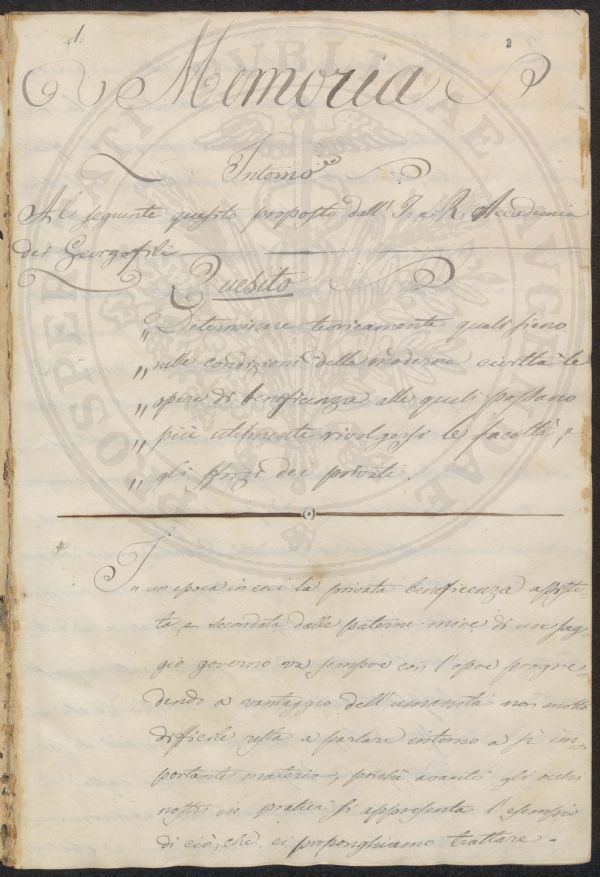 1.
2
Memoria
Intorno
Al seguente quesito proposto dall' I. e R. Accademia
dei Georgofili
Quesito
„ Determinare teoricamente quali sieno
„ nelle condizioni della moderna civiltà le
„ opere di beneficenza alle quali possano
„ più utilmente rivolgersi le facoltà, e
„ gli sforzi dei privati.
In un epoca in cui la privata beneficenza assisti-
ta, e secondata dalle paterne mire di un sag-
gio governo va sempre con l'opre progre-
dendo a vantaggio dell'umanità non molto
difficile resta a parlare intorno a sì im-
portante materia, poichè avanti gli occhi
nostri in pratica si appresenta l'esempio
di ciò, che ci proponghiamo trattare.
PROSPERITATI PUBLICAE AUGENDAE